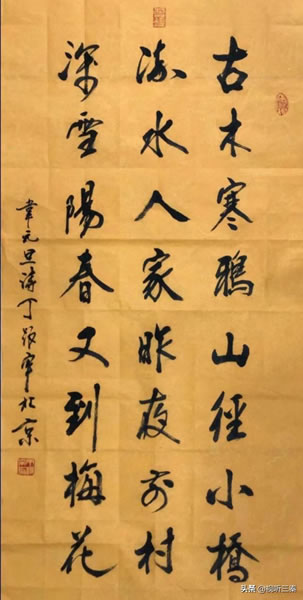 古木寒鴉山徑小橋
流水人家昨夜前村
深雪陽春又到梅花
韋元旦詩丁
京
头条 @视听三秦